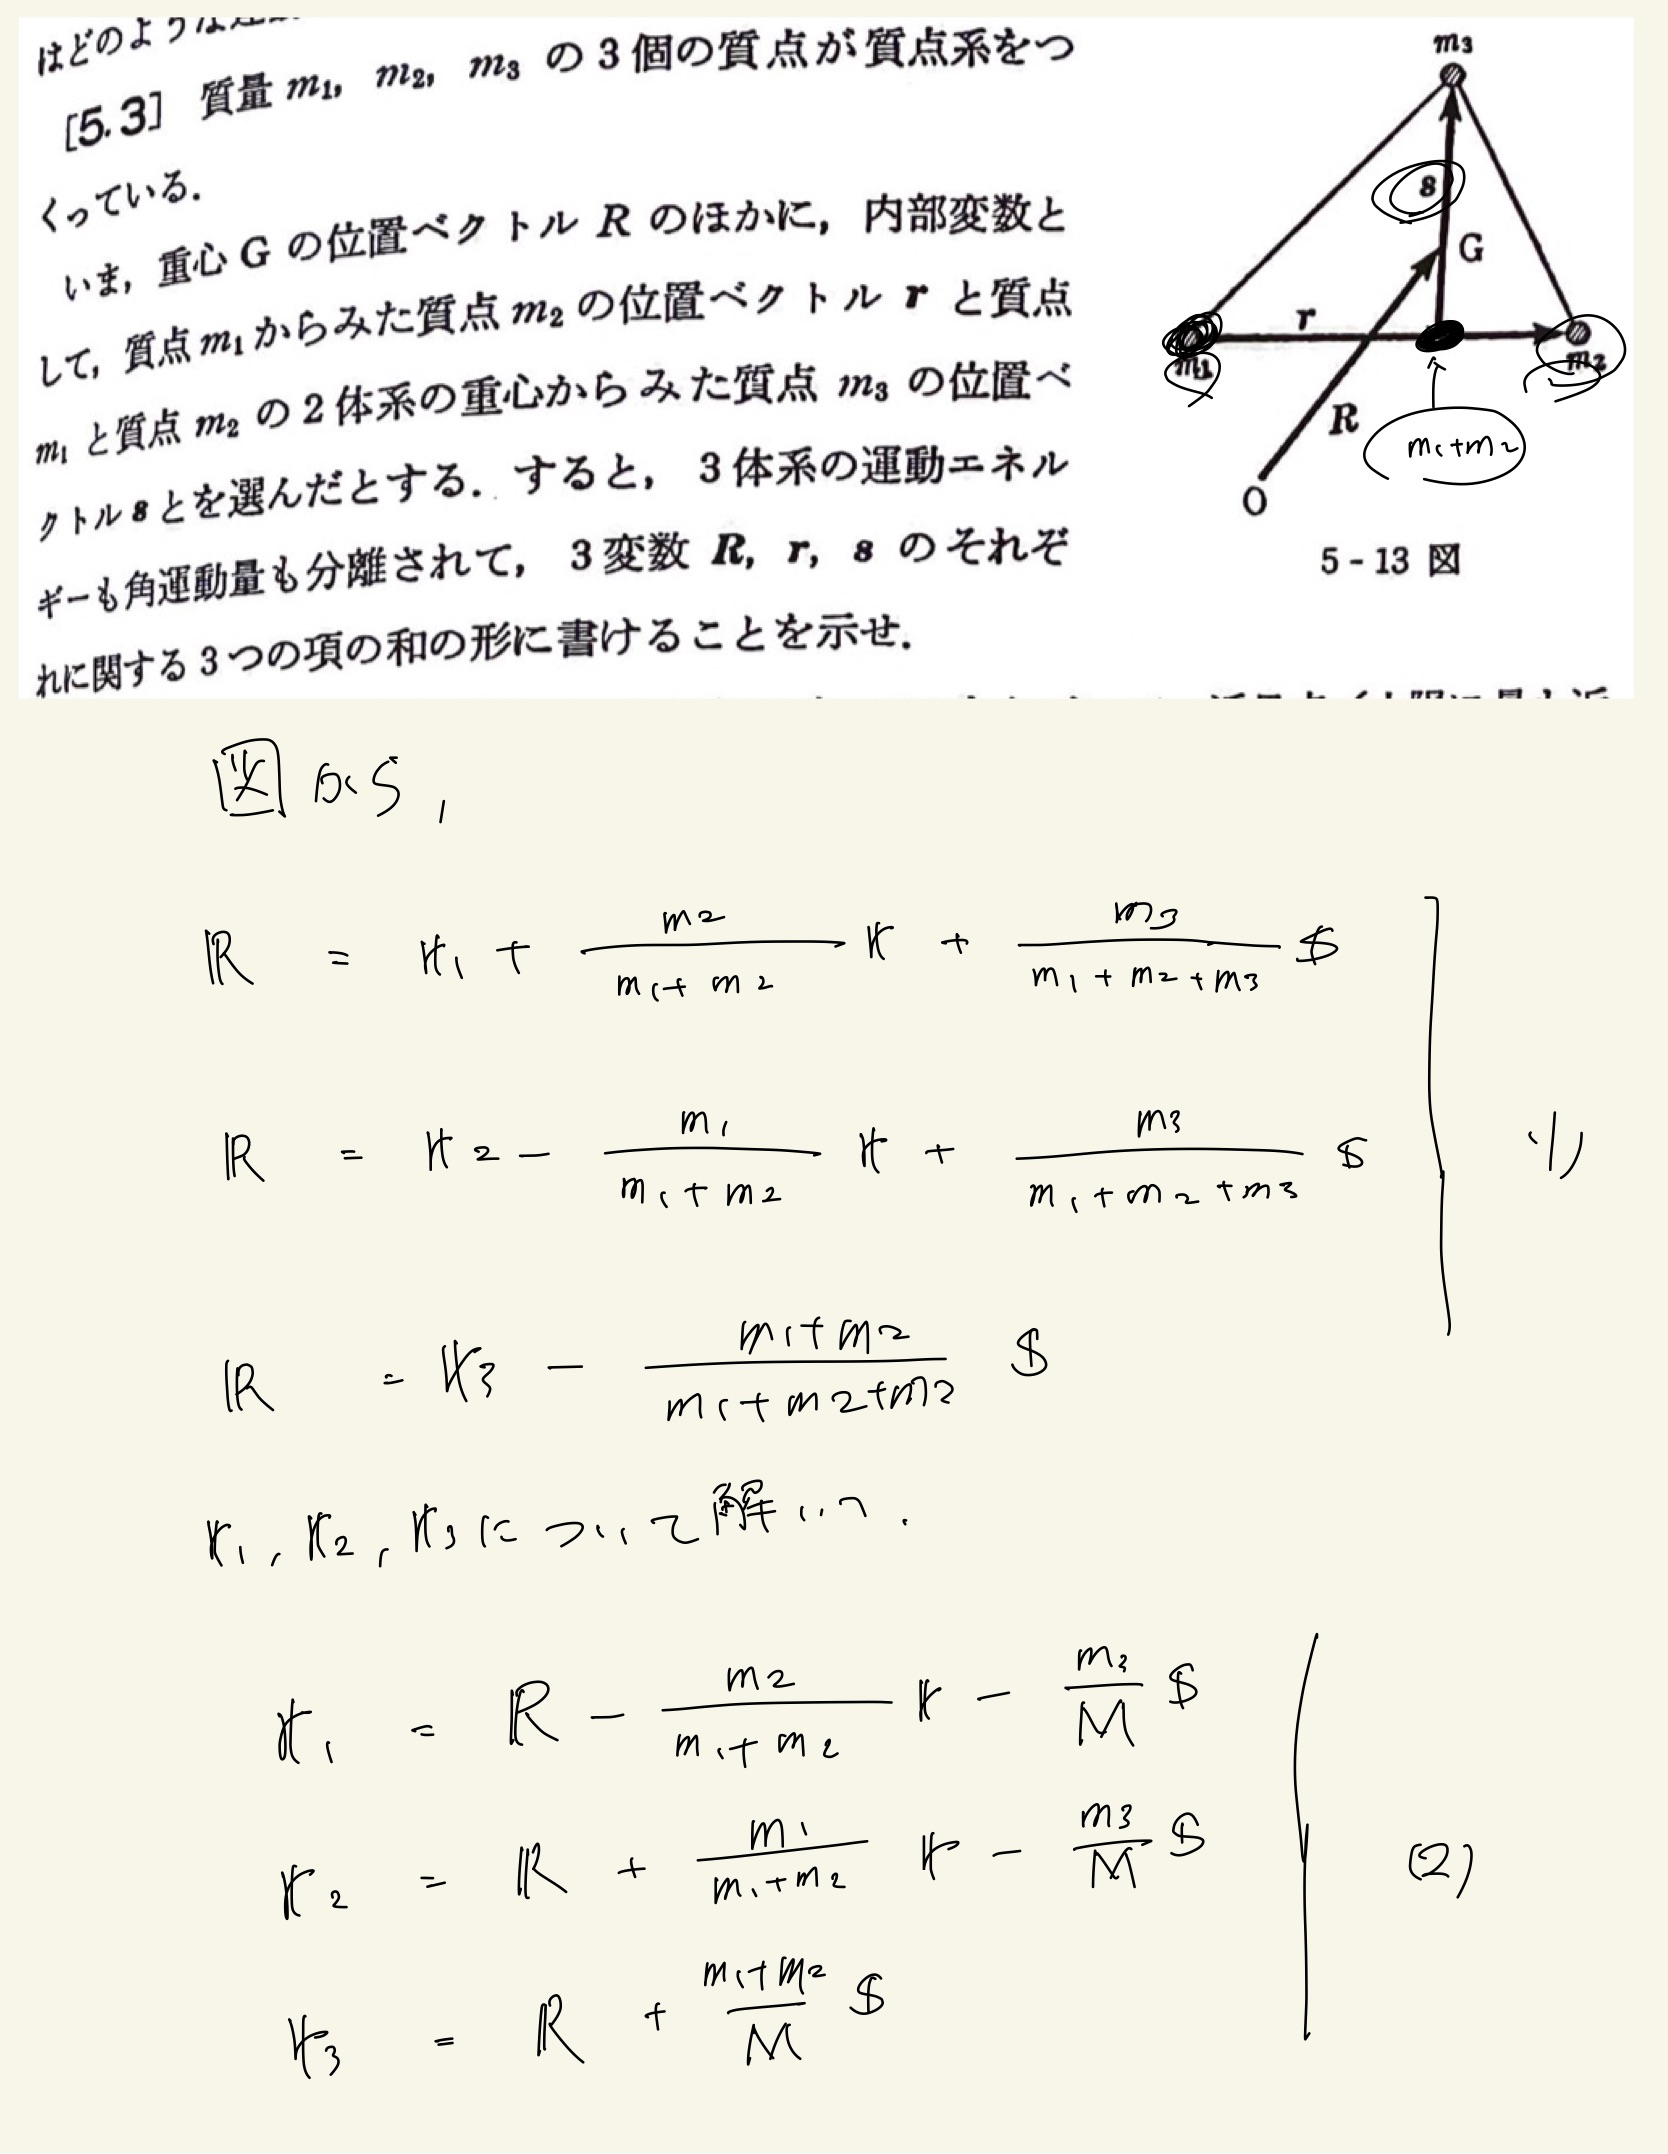 [5.3] 質量 m₁, m₂, m₃ の3個の質点が質点系をつ
くっている.
いま, 重心 G の位置ベクトル R のほかに, 内部変数と
して, 質点 m₁ からみた質点 m₂ の位置ベクトル r と質点
m₁ と質点 m₂ の2体系の重心からみた質点 m₃ の位置ベ
クトル s とを選んだとする. すると, 3体系の運動エネル
ギーも角運動量も分離されて, 3変数 R, r, s のそれぞ
れに関する3つの項の和の形に書けることを示せ.
m₃
s
G
r
m₁
m₂
R
m₁+m₂
O
5-13 図
図から,
R = r₁ + m₂/(m₁+m₂) r + m₃/(m₁+m₂+m₃) s
R = r₂ − m₁/(m₁+m₂) r + m₃/(m₁+m₂+m₃) s
(1)
R = r₃ − (m₁+m₂)/(m₁+m₂+m₃) s
r₁, r₂, r₃ について解いて.
r₁ = R − m₂/(m₁+m₂) r − m₃/M s
r₂ = R + m₁/(m₁+m₂) r − m₃/M s
(2)
r₃ = R + (m₁+m₂)/M s